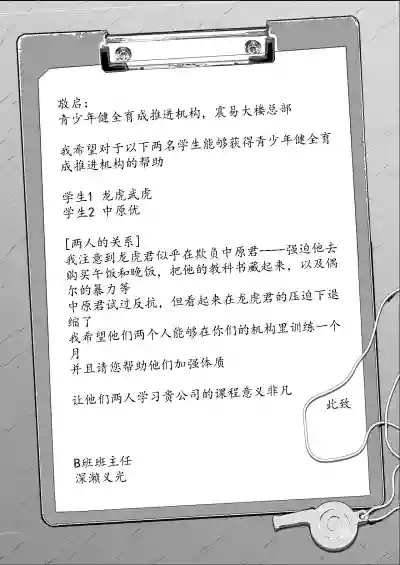 敬启:
青少年健全育成推进机构，震易大楼总部
我希望对于以下两名学生能够获得青少年健全育
成推进机构的帮助
学生1 龙虎武虎
学生2 中原优
[两人的关系]
我注意到龙虎君似乎在欺负中原君——强迫他去
购买午饭和晚饭，把他的教科书藏起来，以及偶
尔的暴力等
中原君试过反抗，但看起来在龙虎君的压迫下退
缩了
我希望他们两个人能够在你们的机构里训练一个
月
并且请您帮助他们加强体质
让他们两人学习贵公司的课程意义非凡
此致
B班班主任
深濑义光